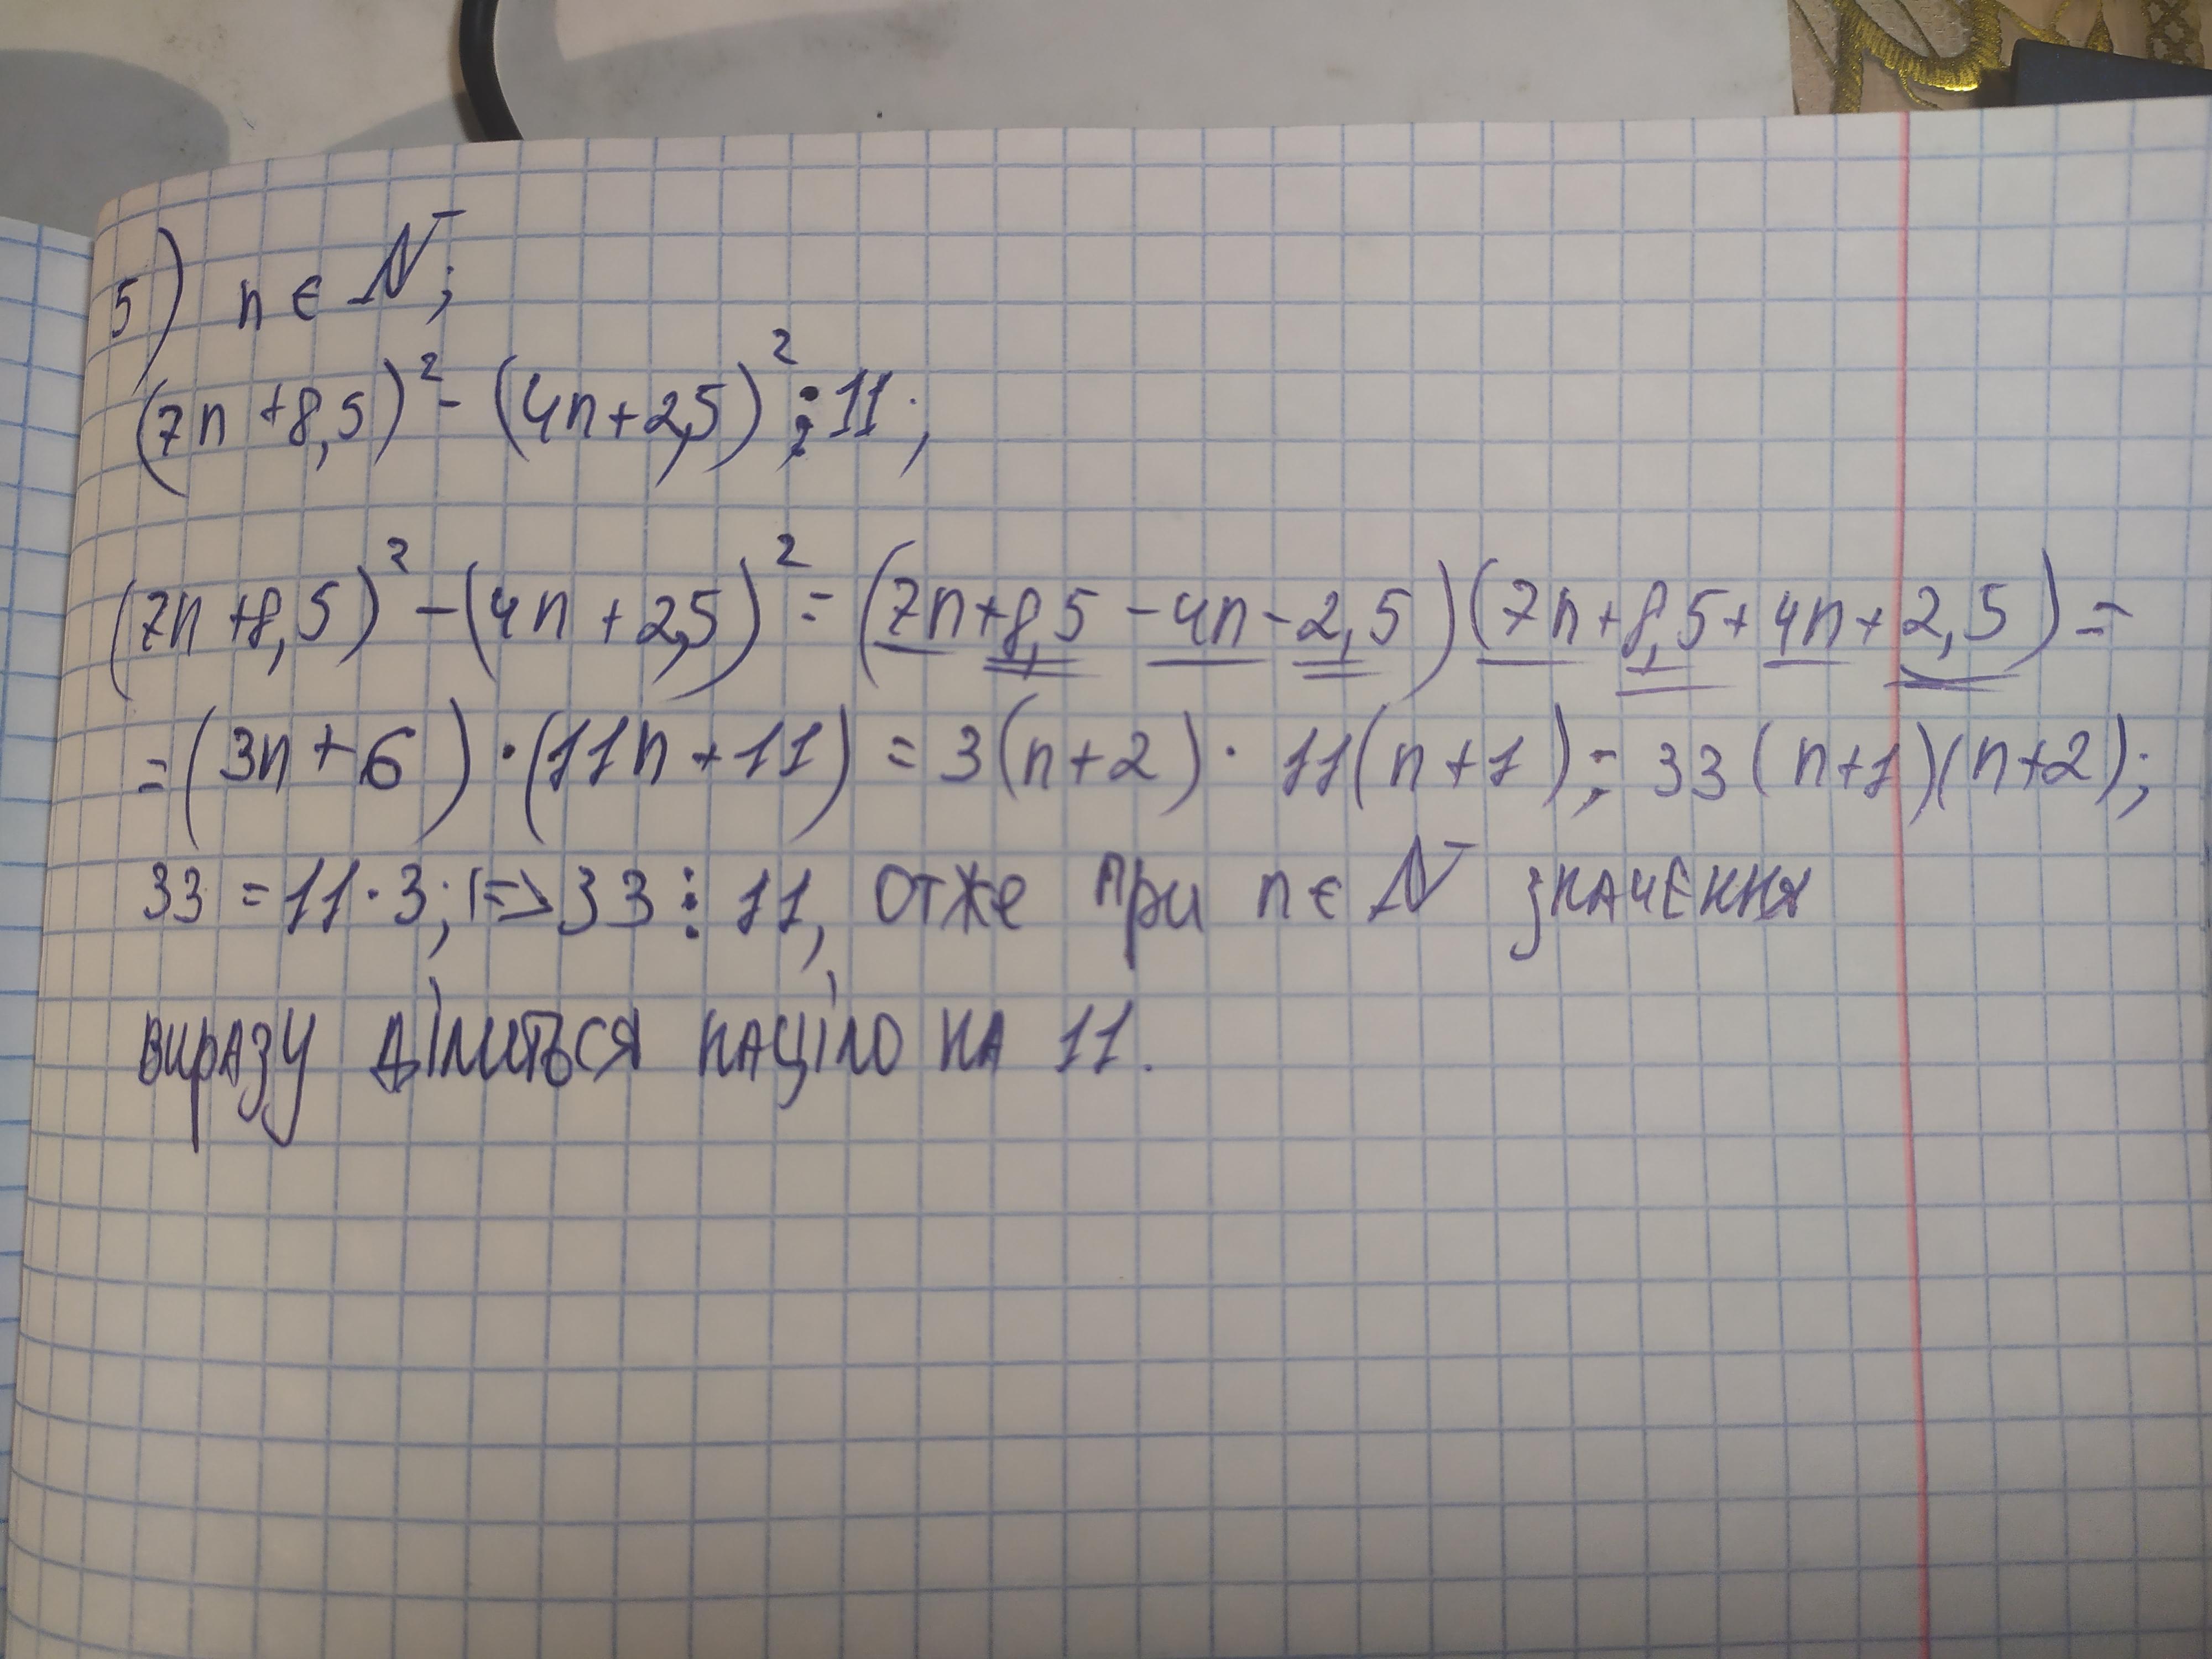 5) n ∈ N;
(7n + 8,5)² - (4n + 2,5)² ⋮ 11;
(7n + 8,5)² - (4n + 2,5)² = (7n + 8,5 - 4n - 2,5)(7n + 8,5 + 4n + 2,5) =
= (3n + 6) · (11n + 11) = 3(n + 2) · 11(n + 1) = 33(n+1)(n+2);
33 = 11 · 3; => 33 ⋮ 11, отже при n ∈ N значення
виразу ділиться націло на 11.